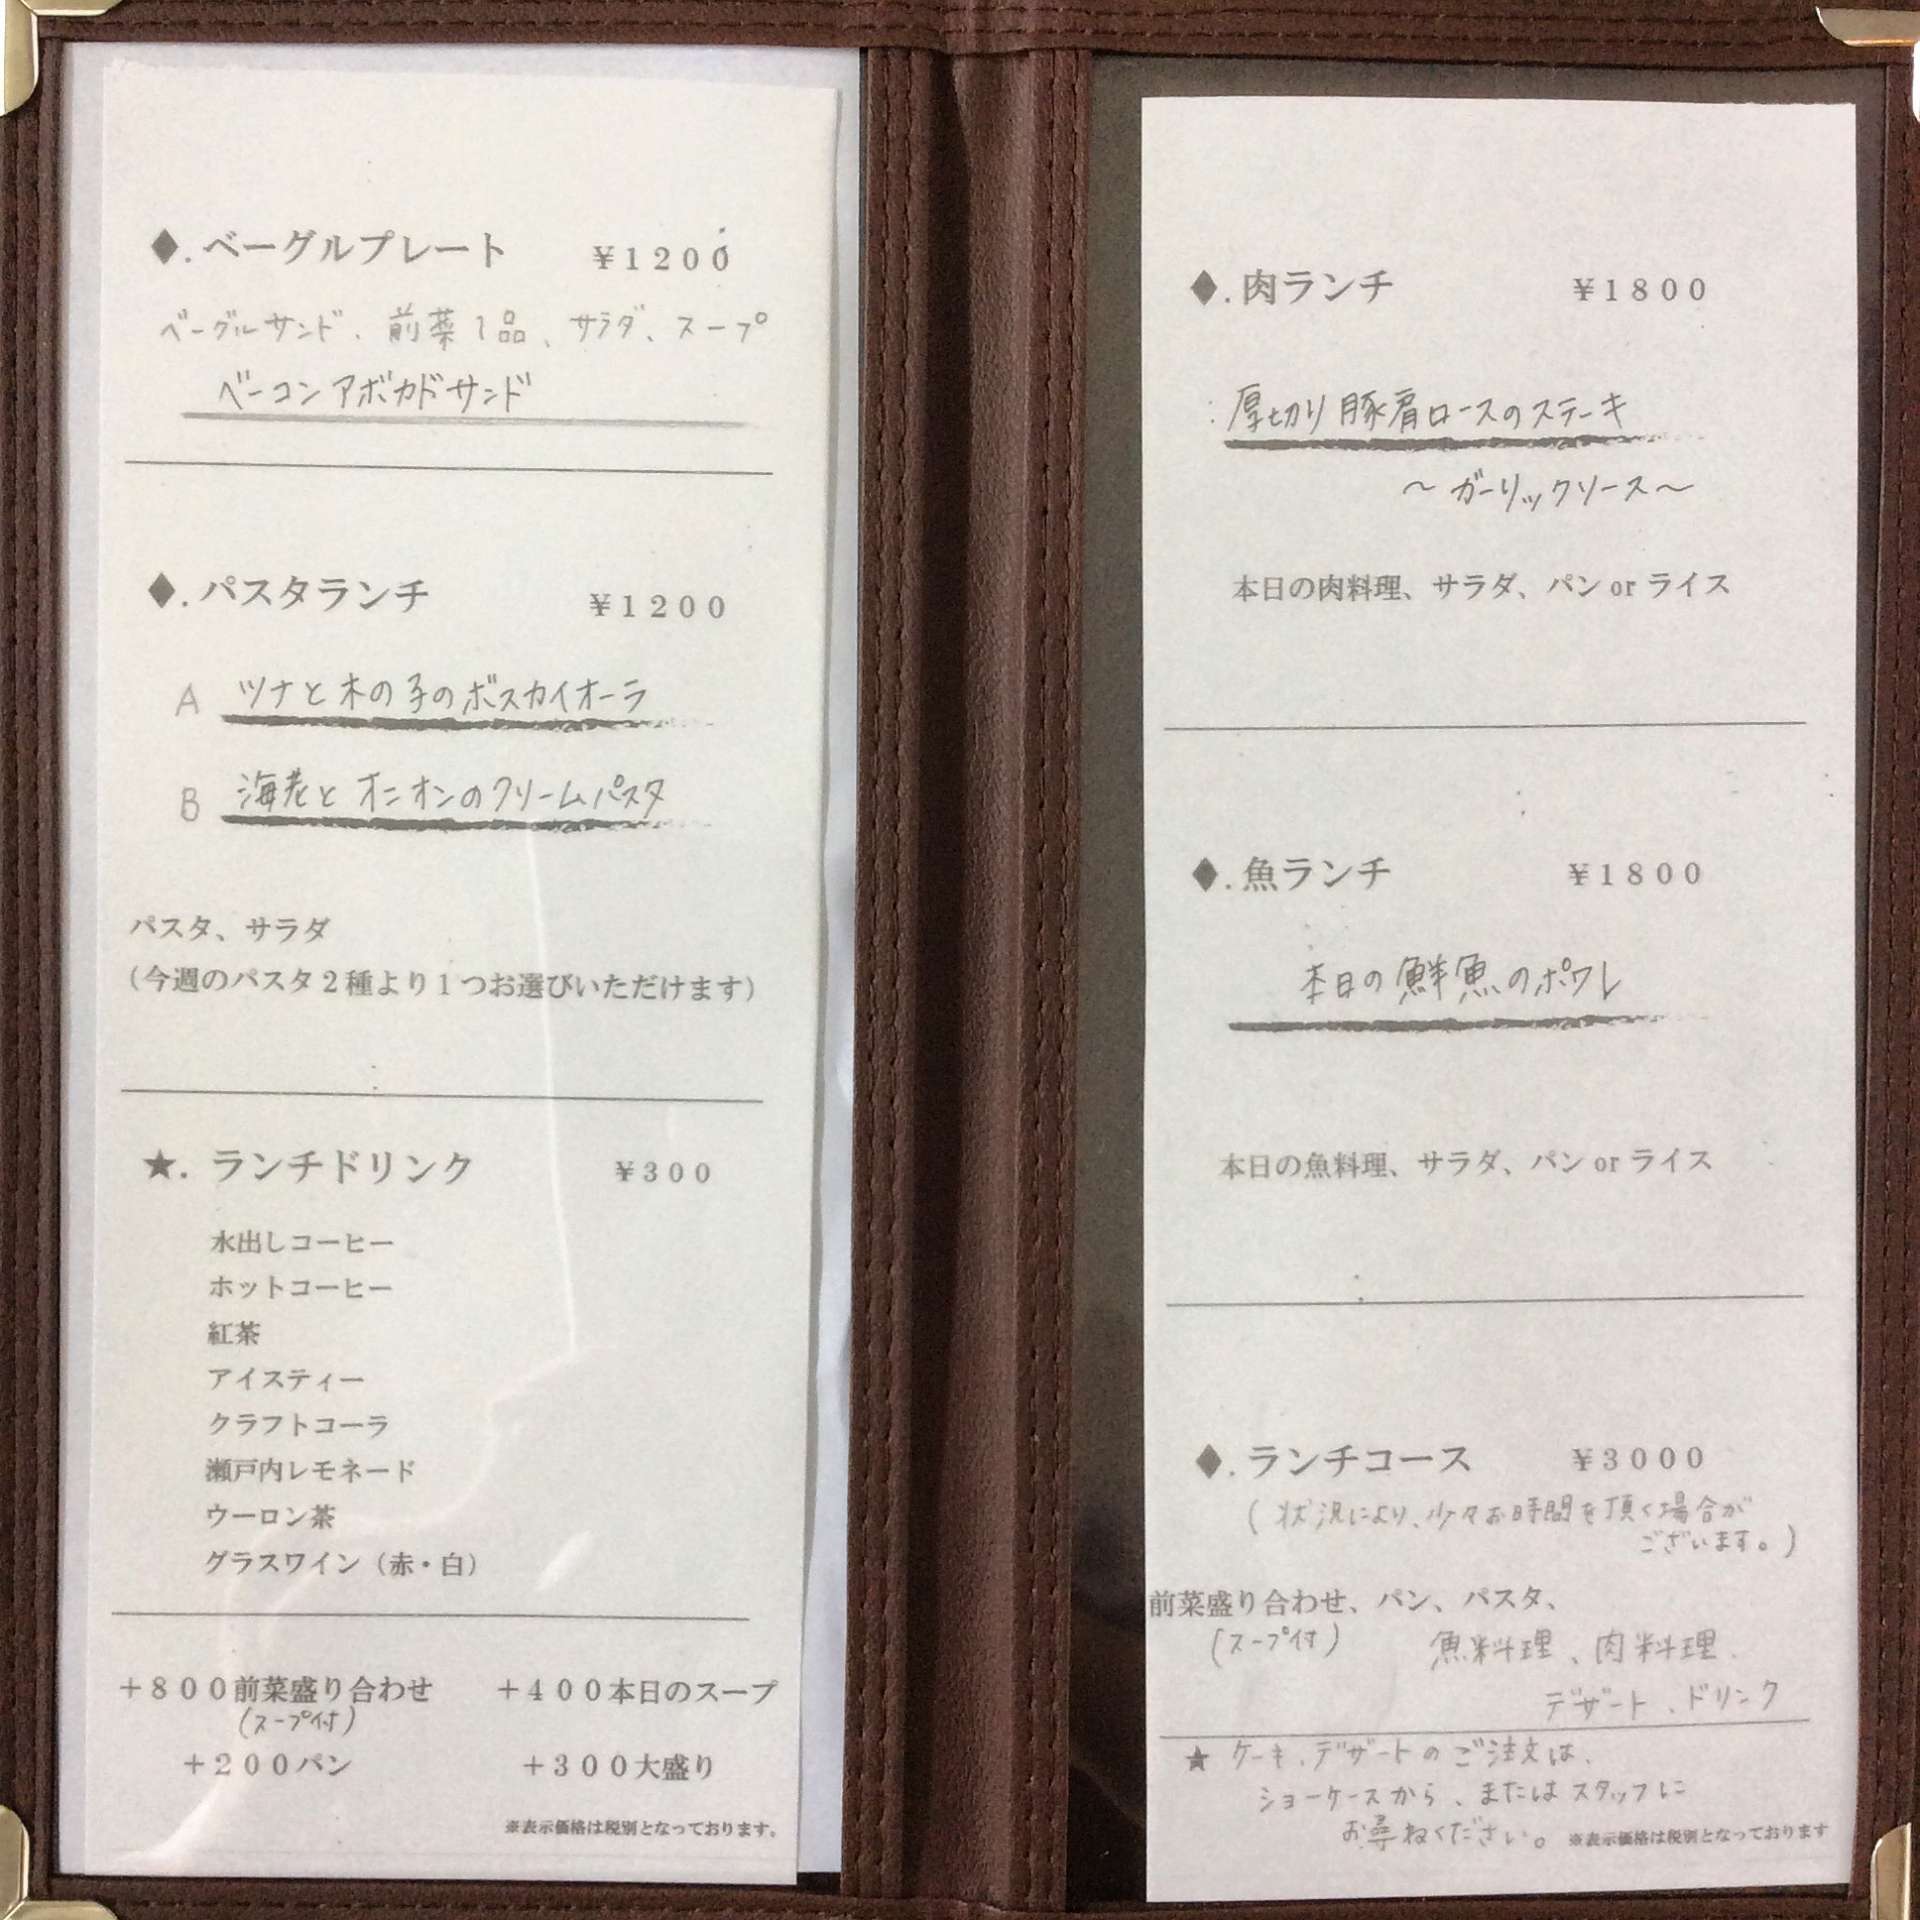 ◆. ベーグルプレート ¥1200
ベーグルサンド、前菜1品、サラダ、スープ
ベーコンアボカドサンド
◆. パスタランチ ¥1200
A ツナと木の子のボスカイオーラ
B 海老とオニオンのクリームパスタ
パスタ、サラダ
(今週のパスタ2種より1つお選びいただけます)
★. ランチドリンク ¥300
水出しコーヒー
ホットコーヒー
紅茶
アイスティー
クラフトコーラ
瀬戸内レモネード
ウーロン茶
グラスワイン(赤・白)
+800前菜盛り合わせ +400本日のスープ
(スープ付)
+200パン +300大盛り
※表示価格は税別となっております。
◆. 肉ランチ ¥1800
厚切り豚肩ロースのステーキ
〜ガーリックソース〜
本日の肉料理、サラダ、パン or ライス
◆. 魚ランチ ¥1800
本日の鮮魚のポワレ
本日の魚料理、サラダ、パン or ライス
◆. ランチコース ¥3000
(状況により、少々お時間を頂く場合が
ございます。)
前菜盛り合わせ、パン、パスタ、
(スープ付) 魚料理、肉料理、
デザート、ドリンク
★ ケーキ、デザートのご注文は、
ショーケースから、またはスタッフに
お尋ねください。 ※表示価格は税別となっております